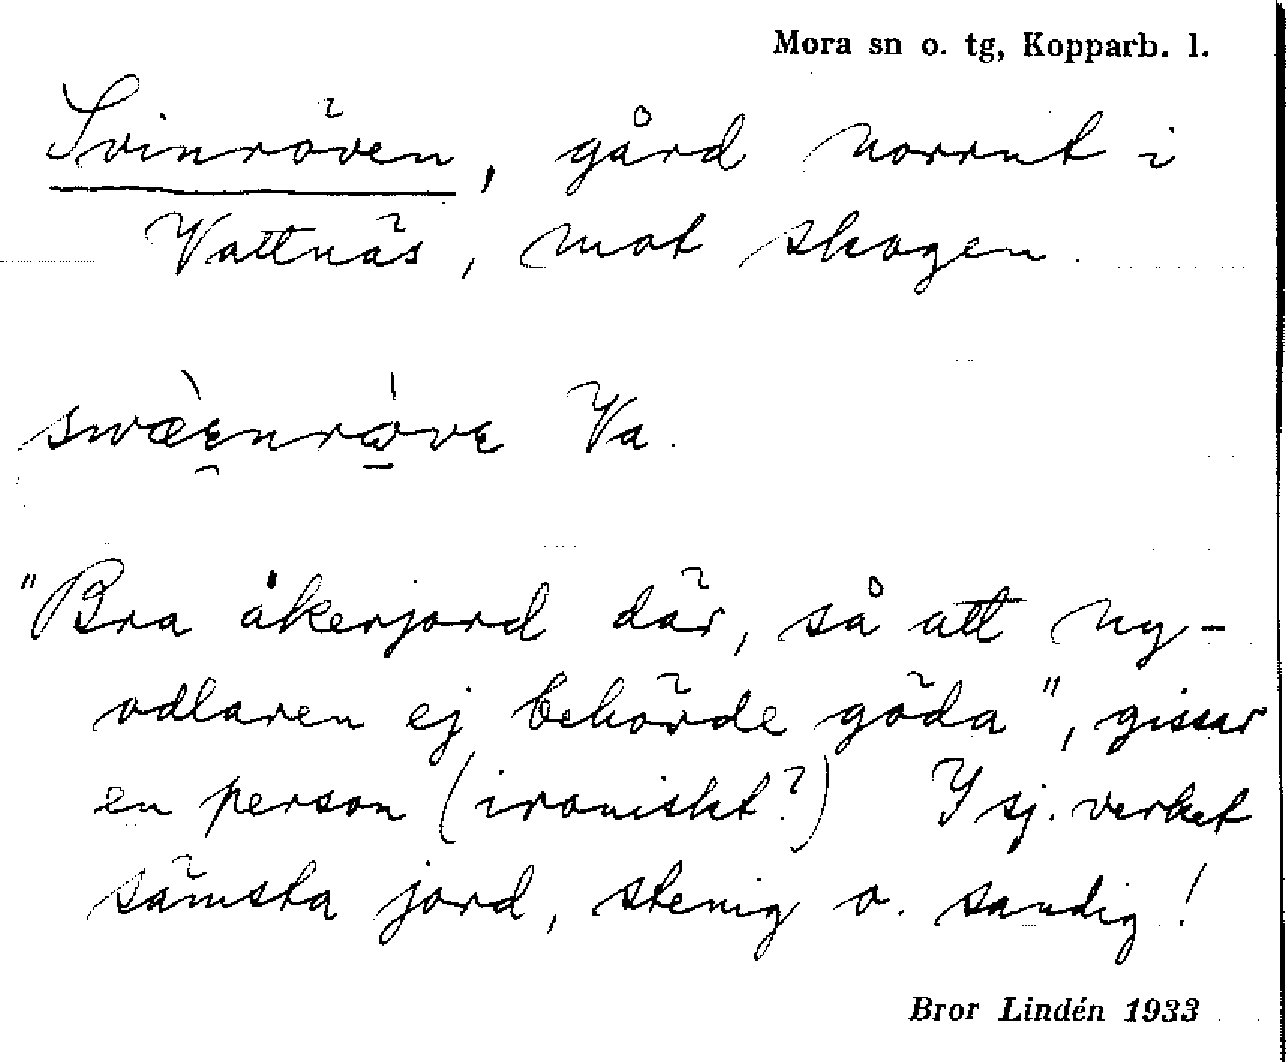 Mora sn o. tg, Kopparb. l.
Svinröven, gård norrut i
Vattnäs, mot skogen.
swæ̀ɛ̯nrω̱̍vɛ Va.
"Bra åkerjord där, så att ny-
odlaren ej behövde göda", gissar
en person (ironiskt?) I sj. verket
sämsta jord, stenig o. sandig!
Bror Lindén 1933